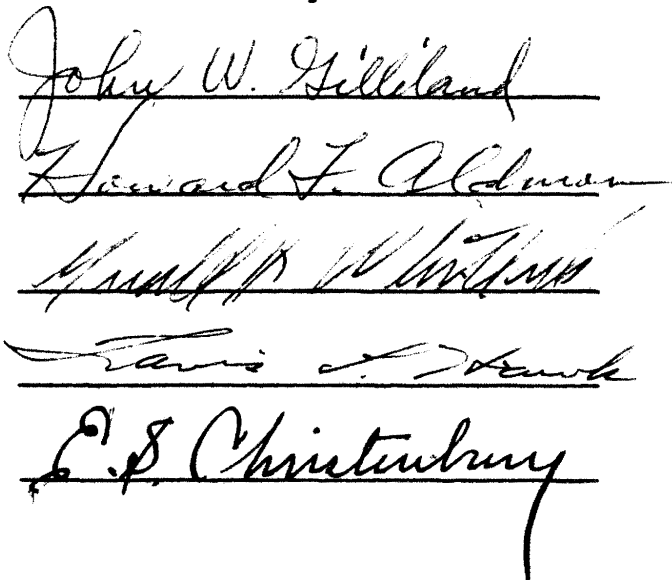 John W. Gilliland
Howard F. Aldmon
Travis L. Hawk
E. S. Christenbury